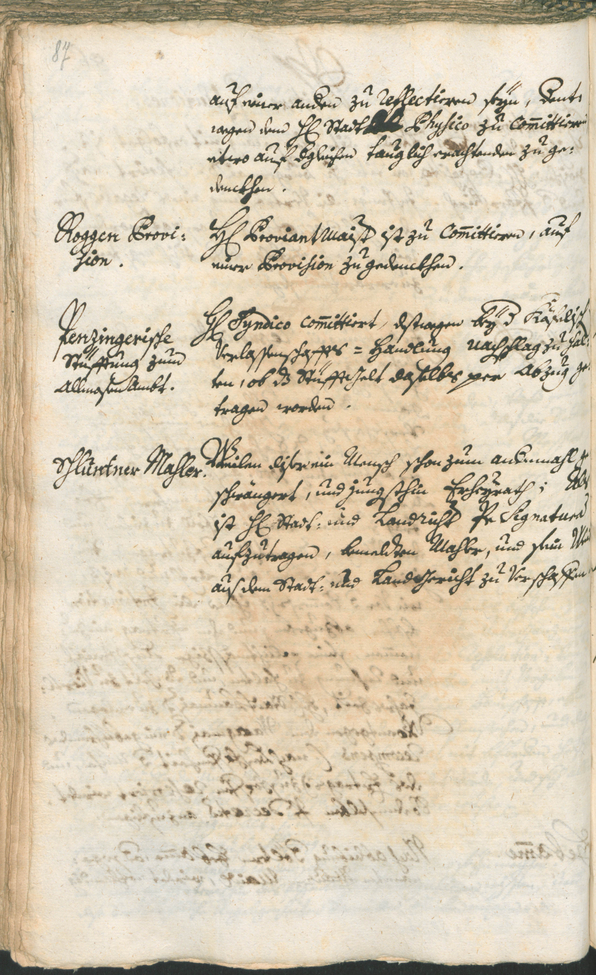 87
auf einen anderen zu reflectieren seÿn, dent-
wegen dem H. Stadt Physico zu committieren
etwo auf dergleichen tauglich erachtenden zu ge-
denckhen.
Roggen Provi-
sion.
H. Proviantmaister ist zu committieren, auf
einer Provision zu gedenckhen.
Penzingerische
Stüfftung zum
Allmosenambt.
H. Syndico committiert, destwegen beÿ d
Verlassenschaffts=Handlung nachschlag zu hal-
ten, ob das Stüfftgelt daselbst per Abzug ge-
tragen worden.
Schluntner Mahler.
Weilen diser ein Mensch schon zum andenmahl ge-
schwängert, und jüngsthin Erheyrath;
ist H. Stadt- und Landricht. per Signatur
aufzutragen, bemeldten Mahler, und sein
aus dem Stadt- und Landgericht zu verschaffen